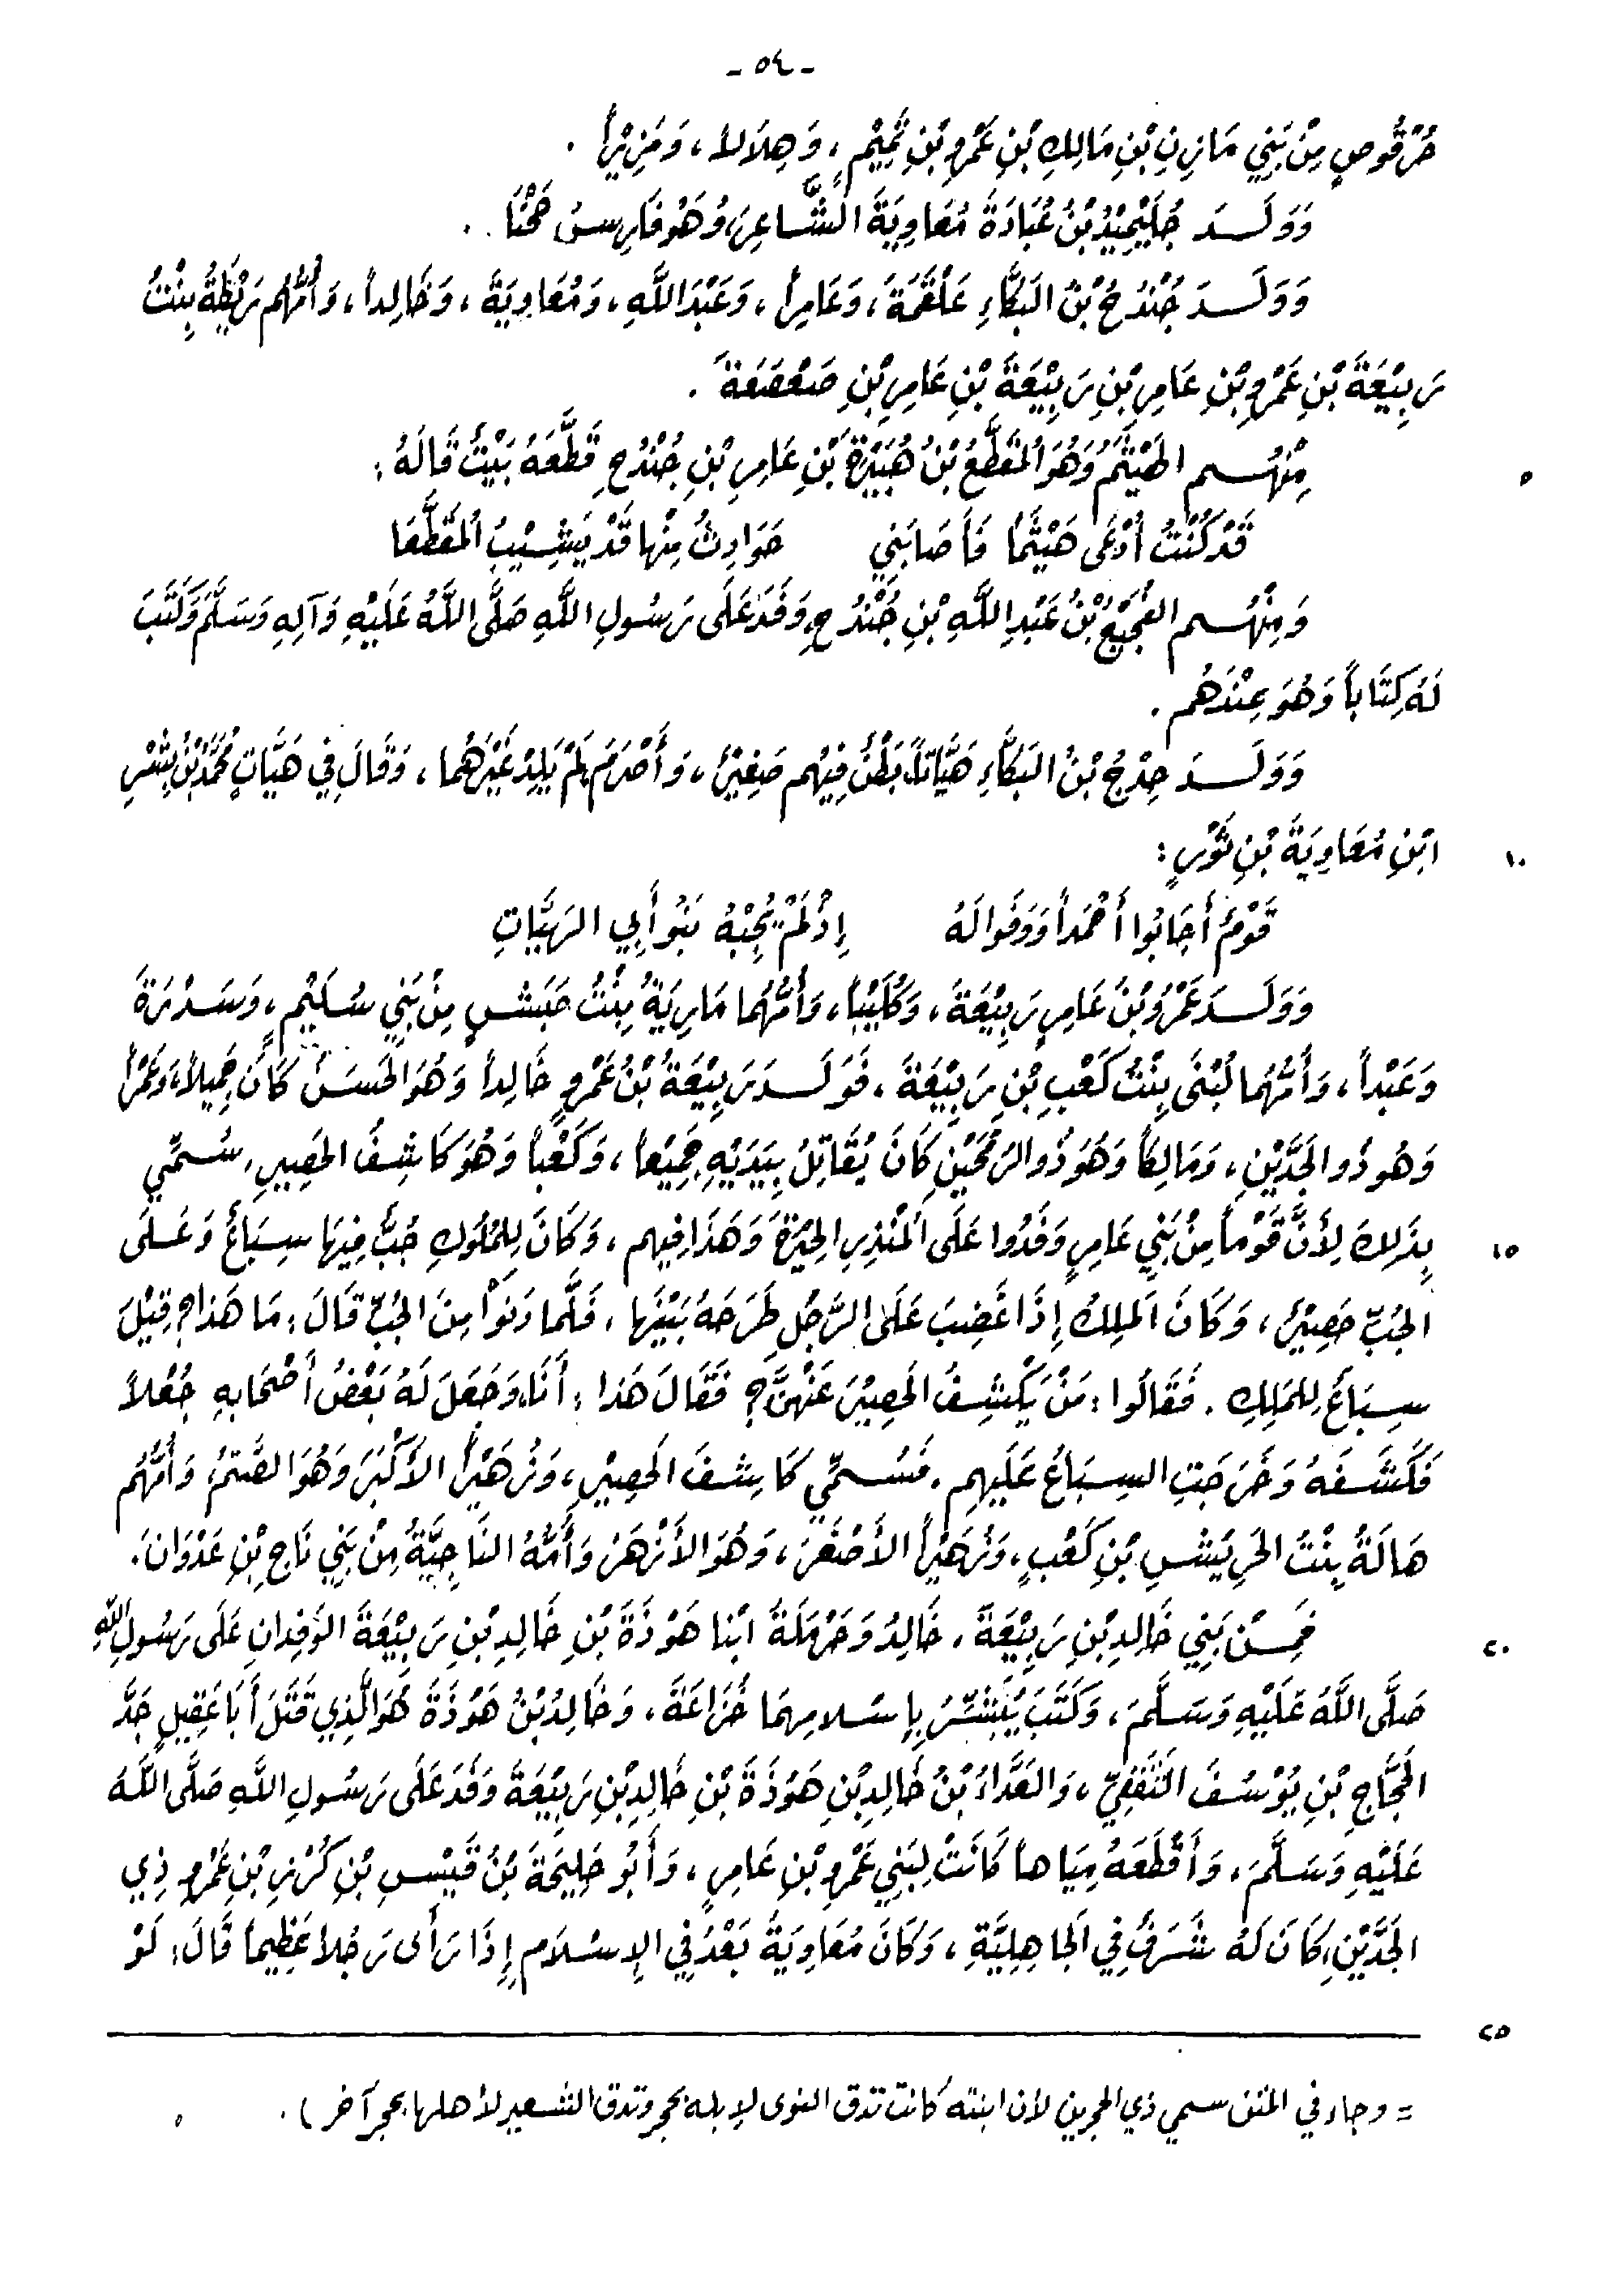 - ٥٤ -
حُرْقُوصٍ مِنْ بَنِي مَازِنِ بْنِ مَالِكِ بْنِ عَمْرِو بْنِ تَمِيْمٍ، وَهِلَالاً، وَمَزِيْراً.
وَوَلَدَ جُلَيْمِيْدُ بْنُ عُبَادَةَ مُعَاوِيَةَ الشَّاعِرَ وَهُوَ فَارِسُ
وَوَلَدَ جُنْدُحُ بْنُ البَكَّاءِ عَلْقَمَةَ، وَعَامِراً، وَعَبْدَ اللَّهِ، وَمُعَاوِيَةَ، وَخَالِداً، وَأُمُّهُم رَيْطَةُ بِنْتُ
رَبِيْعَةَ بْنِ عَمْرِو بْنِ عَامِرِ بْنِ رَبِيْعَةَ بْنِ عَامِرِ بْنِ صَعْصَعَةَ.
مِنْهُم الهَيْثَمُ وَهُوَ المُقَطَّعُ بْنُ هُبَيْرَةَ بْنِ عَامِرِ بْنِ جُنْدُحٍ قَطَّعَهُ بَيْتٌ قَالَهُ:
٥
قَدْ كُنْتُ أُدْعَى هَيْثَماً فَأَصَابَنِي حَوَادِثُ مِنْها قَدْ يَشِيْبُ المُقَطَّعَا
وَمِنْهُم الفُجَيْعُ بْنُ عَبْدِ اللَّهِ بْنِ جُنْدُحٍ، وَفَدَ عَلَى رَسُولِ اللَّهِ صَلَّى اللَّهُ عَلَيْهِ وَآلِهِ وَسَلَّمَ وَكَتَبَ
لَهُ كِتَاباً وَهُوَ عِنْدَهُم.
وَوَلَدَ حِدْجُ بْنُ البَكَّاءِ هَيَّاتاً، بَطْنٌ فِيْهِم صَغِيْرٌ، وَأَصْرَمَ لَمْ يَلِدْ غَيْرَهُما، وَقَالَ فِي هَيَّاتٍ مُحَمَّدُ بْنُ بِشْرِ
ابْنِ مُعَاوِيَةَ بْنِ ثَوْرٍ:
١٠
قَوْمٌ أَجَابُوا أَحْمَداً وَوَفَوا لَهُ إِذْ لَمْ يُجِبْهُ بَنُو أَبِي الهَيَّاتِ
وَوَلَدَ عَمْرُو بْنُ عَامِرٍ رَبِيْعَةَ، وَكُلَيْباً، وَأُمُّهُما مَارِيَةُ بِنْتُ حَبَشٍ مِنْ بَنِي سُلَيْمٍ، وَسَدْرَةَ
وَعَبْداً، وَأُمُّهُما لُبْنَى بِنْتُ كَعْبِ بْنِ رَبِيْعَةَ. فَوَلَدَ رَبِيْعَةُ بْنُ عَمْرٍو خَالِداً وَهُوَ الحَسَنُ كَانَ جَمِيلاً، وَعَمْراً
وَهُوَ ذُو الجَدَّيْنِ، وَمَالِكاً وَهُوَ ذُو الرُّمْحَيْنِ كَانَ يُقَاتِلُ بِيَدَيْهِ جَمِيْعاً، وَكَعْباً وَهُوَ كَاشِفُ الحَصِيرِ، سُمِّي
بِذَلِكَ لِأَنَّ قَوْماً مِنْ بَنِي عَامِرٍ وَفَدُوا عَلَى المُنْذِرِ الحِيْرَةَ وَهَذَا فِيهِم، وَكَانَ لِلمُلُوكِ جُبٌّ فِيْهَا سِبَاعٌ وَعَلَى
١٥
الجُبِّ حَصِيْرٌ، وَكَانَ المَلِكُ إِذَا غَضِبَ عَلَى الرَّجُلِ طَرَحَهُ بَيْنَها، فَلَّما دَنَوْا مِنَ الجُبِّ قَالَ: مَا هَذا؟ قِيْلَ
سِبَاعٌ لِلمَلِكِ. فَقَالُوا: مَنْ يَكْشِفُ الحَصِيْرَ عَنْهُنَّ؟ فَقَالَ هَذا: أَنَا، وَجَعَلَ لَهُ بَعْضُ أَصْحَابِهِ جُعْلاً
فَكَشَفَهُ وَخَرَجَتِ السِبَاعُ عَلَيهِم. فَسُمِّي كَاشِفَ الحَصِيْرِ، وَزُهَيْراً الأَكْبَرَ وَهُوَ الصَّتمُ، وَأُمُّهُم
هَالَةُ بِنْتُ الحَرِيْشِ بْنِ كَعْبٍ، وَزُهَيْراً الأَصْغَرَ، وَهُوَ الأَزْهَرُ وَأُمُّهُ النَاجِيَّةُ مِنْ بَنِي نَاجِ بْنِ عَدْوَانَ.
فَمِنْ بَنِي خَالِدِ بْنِ رَبِيْعَةَ، خَالِدُ وَحَرْمَلَةُ ابْنا هَوْذَةَ بْنِ خَالِدِ بْنِ رَبِيْعَةَ الوَفِدانِ عَلَى رَسُولِ اللَّهِ
٢٠
صَلَّى اللَّهُ عَلَيْهِ وَسَلَّمَ، وَكَتَبَ يُبَشِّرُ بِإِسْلامِهِمَا خُزَاعَةَ، وَخَالِدُ بْنُ هَوْذَةَ هُوَ الَّذِي قَتَلَ أَبَا عَقِيلٍ جَدَّ
الحَجَّاجِ بْنِ يُوسُفَ الثَّقَفِيِّ، وَالعَدَّاءُ بْنُ خَالِدِ بْنِ هَوْذَةَ بْنِ خَالِدِ بْنِ رَبِيْعَةَ وَفَدَ عَلَى رَسُولِ اللَّهِ صَلَّى اللَّهُ
عَلَيْهِ وَسَلَّمَ، وَأَقْطَعَهُ مِيَاهاً كَانَتْ لِبَنِي عَمْرِو بْنِ عَامِرٍ، وَأَبُو حَلِيحَةَ بْنُ قَيْسِ بْنِ كُرْزِ بْنِ عَمْرٍو ذِي
الجَدَّيْنِ، كَانَ لَهُ شَرَفٌ فِي الجَاهِلِيَّةِ، وَكَانَ مُعَاوِيَةُ بَعْدُ فِي الإِسْلَامِ إِذَا رَأَى رَجُلاً عَظِيماً قَالَ: لَوْ
٢٥
= وجاء في المتن سمي ذي الحجرين لأن ابنته كانت تدق النوى لإبله بحجر وتدق الشعير لأهلها بحجر آخر).